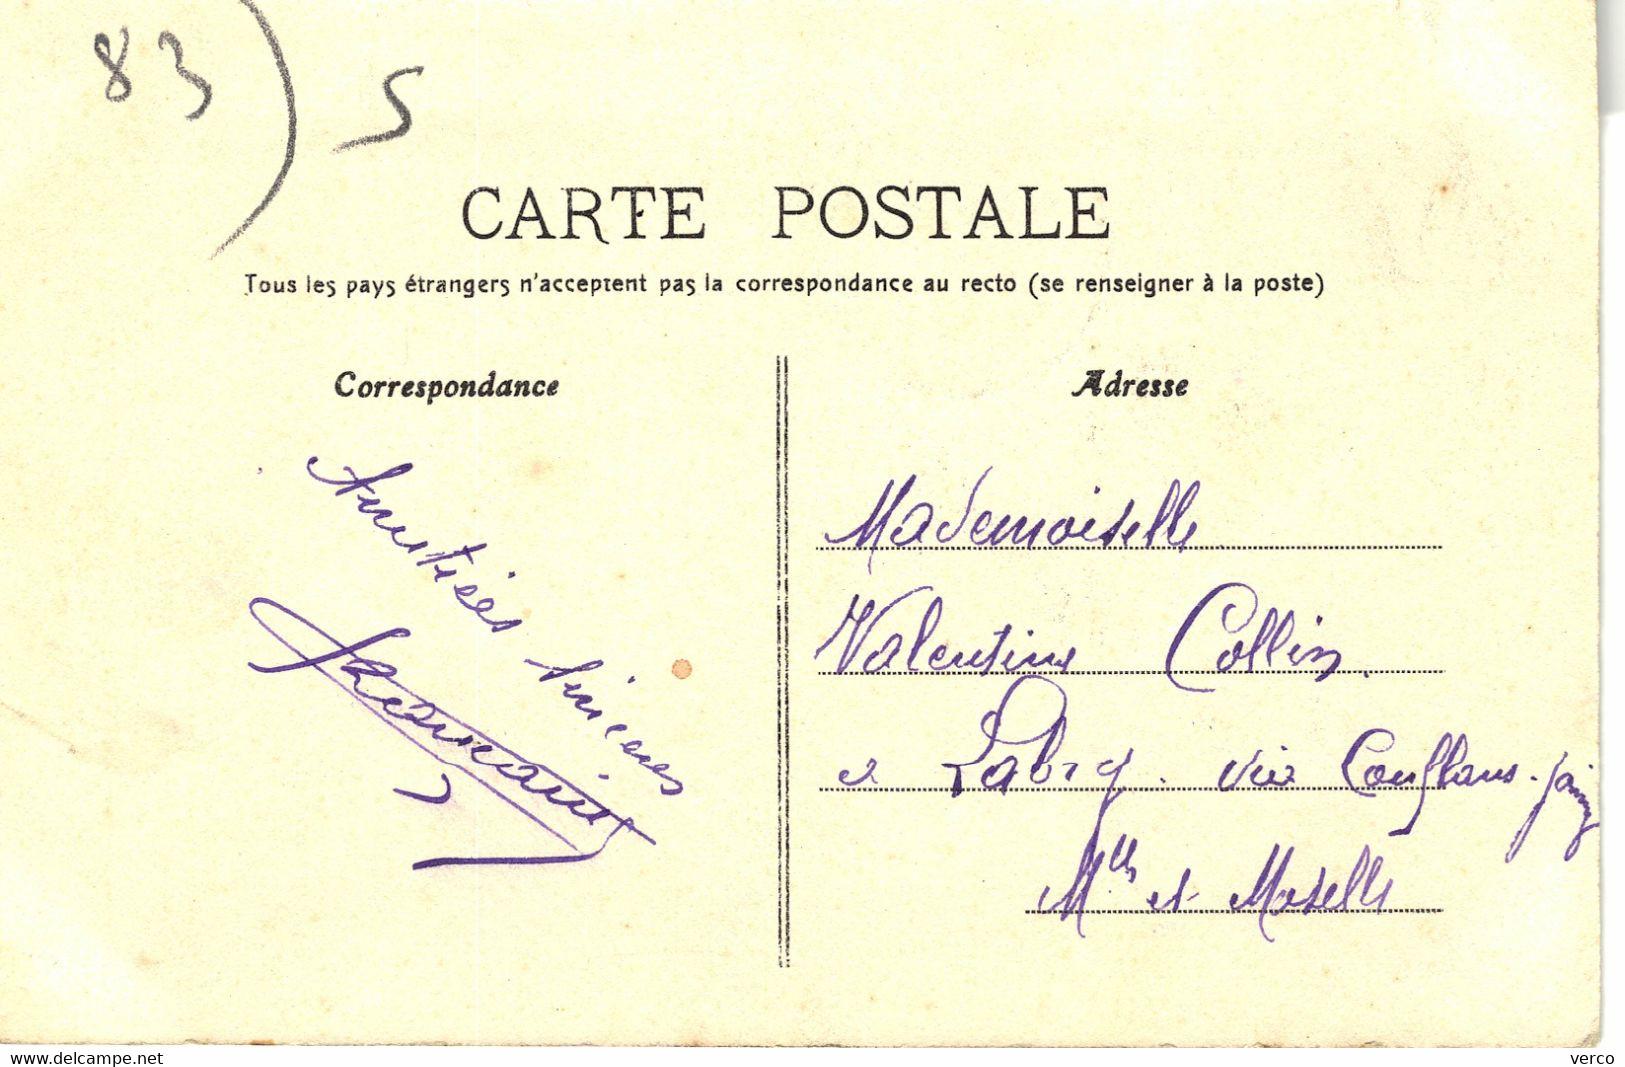 83) 5
CARTE POSTALE
Tous les pays étrangers n'acceptent pas la correspondance au recto (se renseigner à la poste)
Correspondance
Amitiés sincères
Adresse
Mademoiselle
Valentine Collin
à Labry. via Conflans-Jarny
Mthe et Moselle
www.delcampe.net
verco